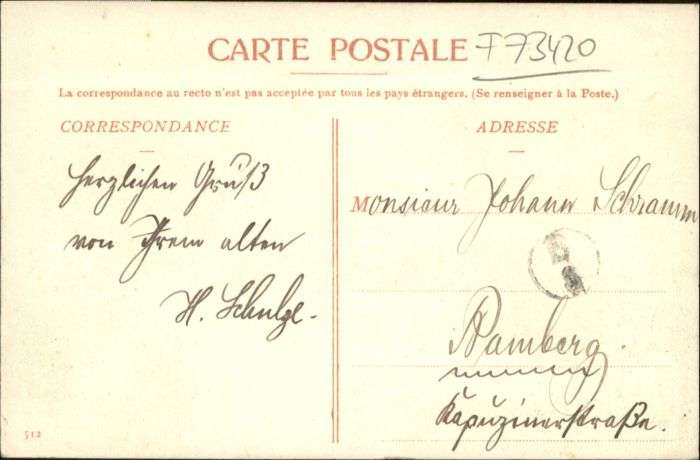 CARTE POSTALE
F 73420
La correspondance au recto n'est pas acceptée par tous les pays étrangers. (Se renseigner à la Poste.)
CORRESPONDANCE
Herzlichen Gruß
von Ihrem alten
H. Schulze.
ADRESSE
Monsieur Johann Schramm
Bamberg.
Kapuzinerstraße.
512